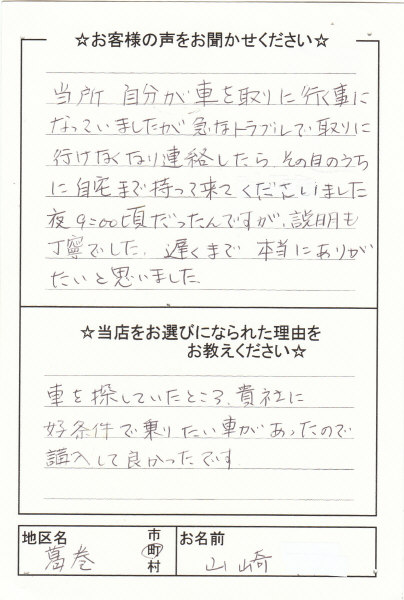 ☆お客様の声をお聞かせください☆
当所 自分が車を取りに行く事に
なっていましたが急なトラブルで取りに
行けなくなり連絡したら その日のうち
に自宅まで持って来てくださいました
夜9:00頃だったんですが、説明も
丁寧でした、遅くまで 本当にありが
たいと思いました
☆当店をお選びになられた理由を
お教えください☆
車を探していたところ、貴社に
好条件で乗りたい車があったので
購入して良かったです
地区名 市町村 お名前
葛巻 山崎